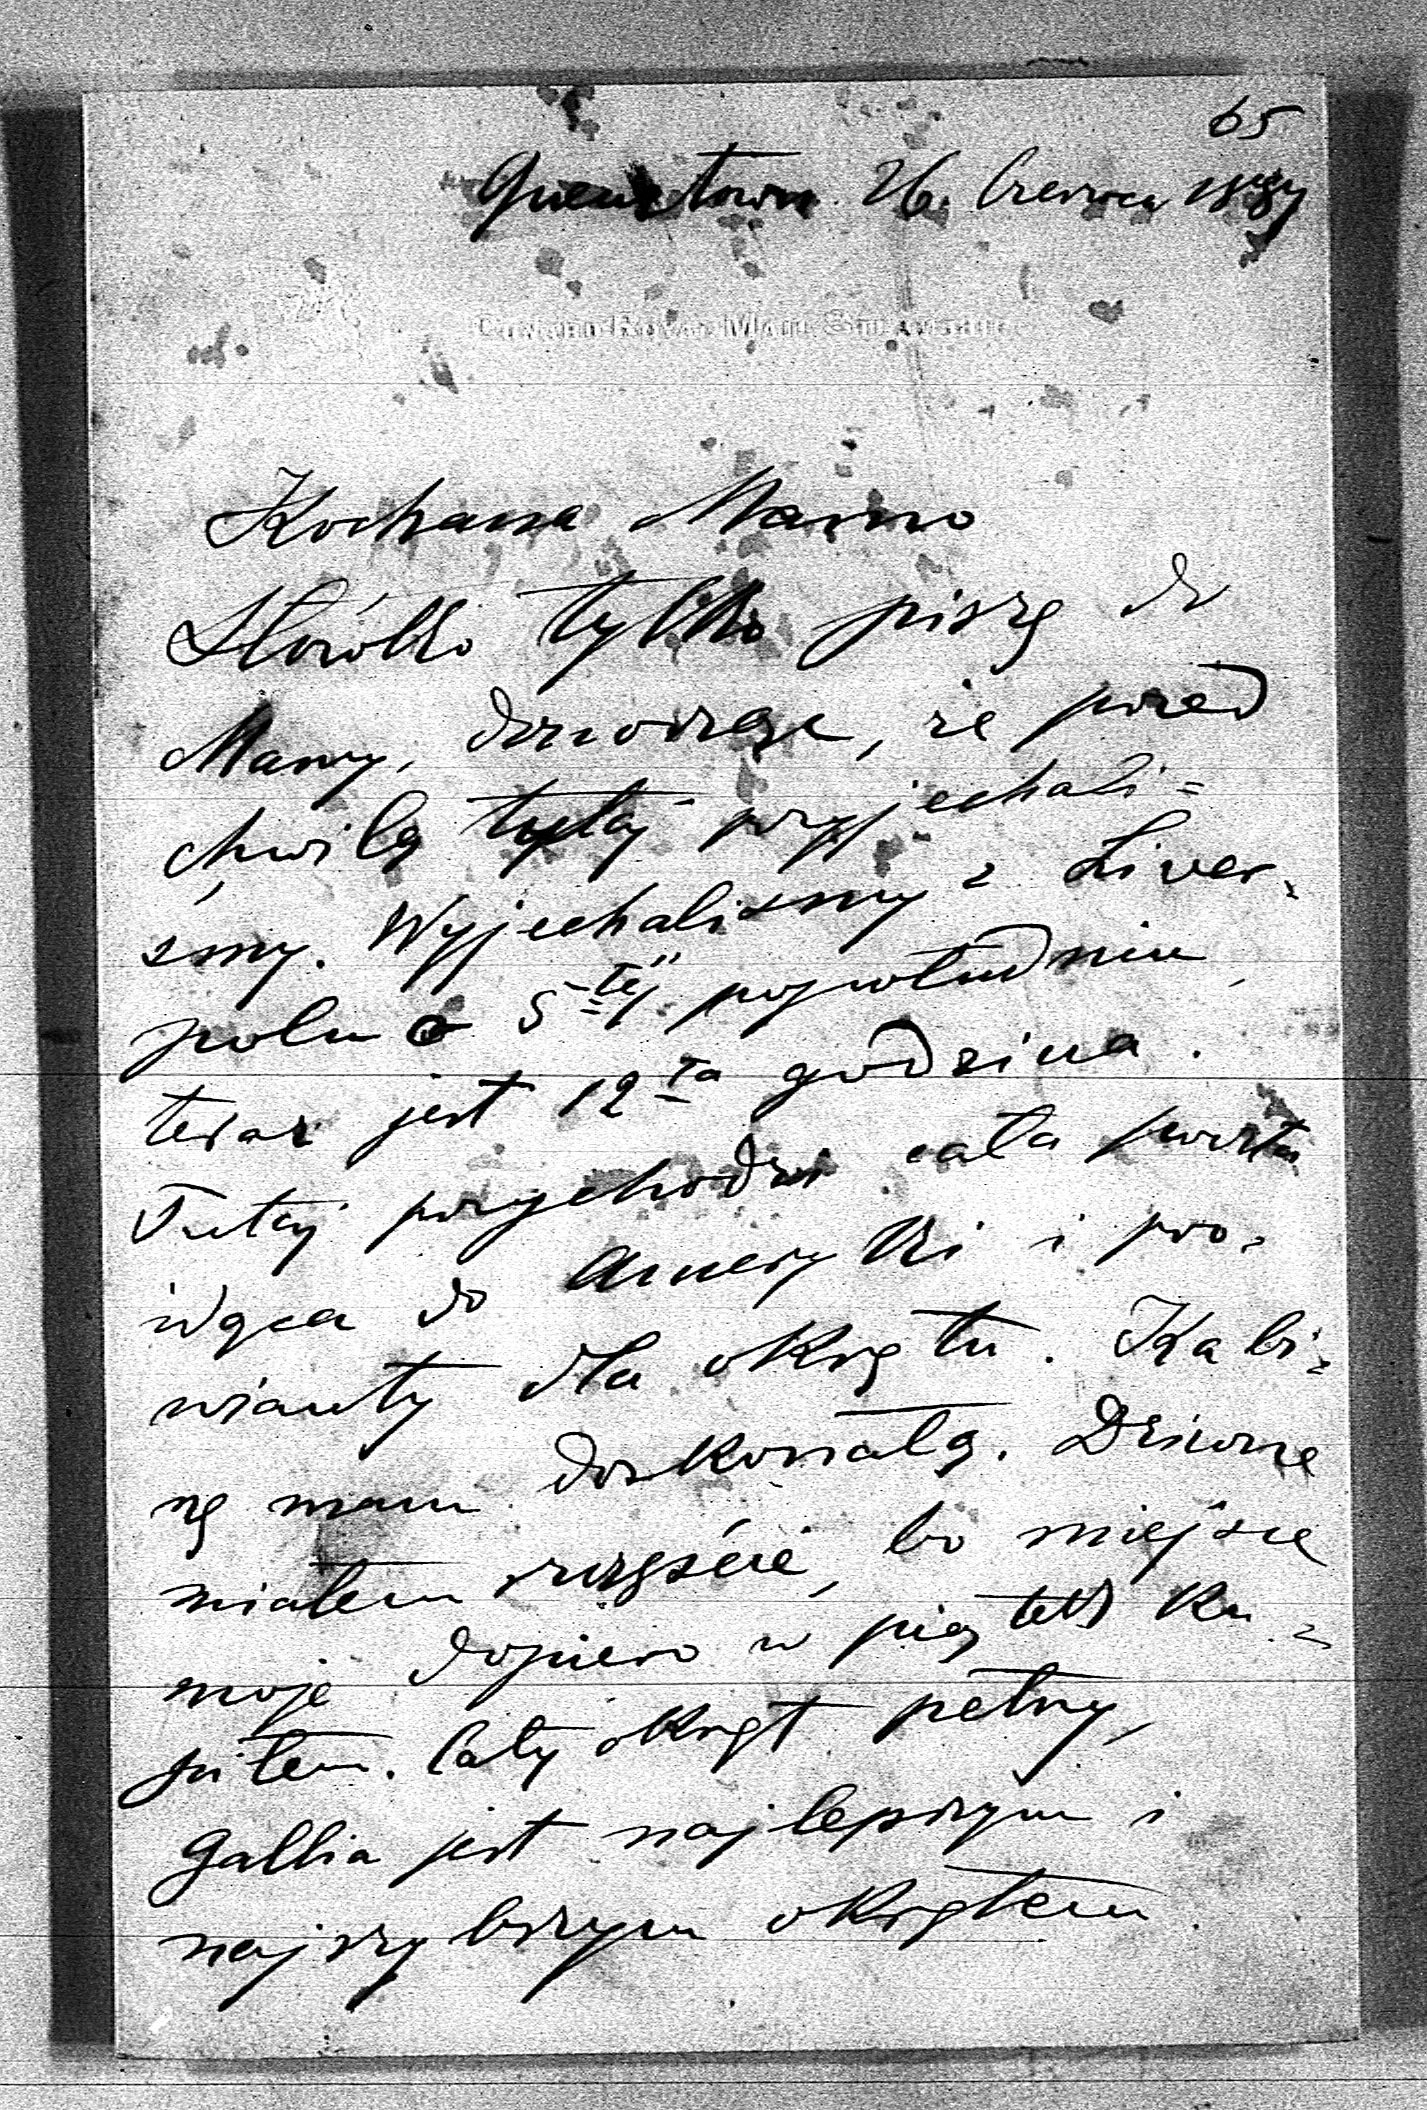 65
Queenstown. 26. Czerwca 1887
Cunard Royal Mail Steamship
Kochana Mamo
Słówko tylko piszę do
Mamy, donosząc, że przed
chwilą tutaj przyjechali=
śmy. Wyjechalismy z Liver-
polu o 5-tej popołudniu,
teraz jest 12ta godzina.
Tutaj przychodzi cała poczta
idąca do Ameryki i pro-
wianty dla okrętu. Kabi=
nę mam doskonałą. Dziwne
miałem szczęście, bo miejsce
moje dopiero w piątek ku=
piłem. Cały okręt pełny,
Gallia jest najlepszym i
najszybszym okrętem